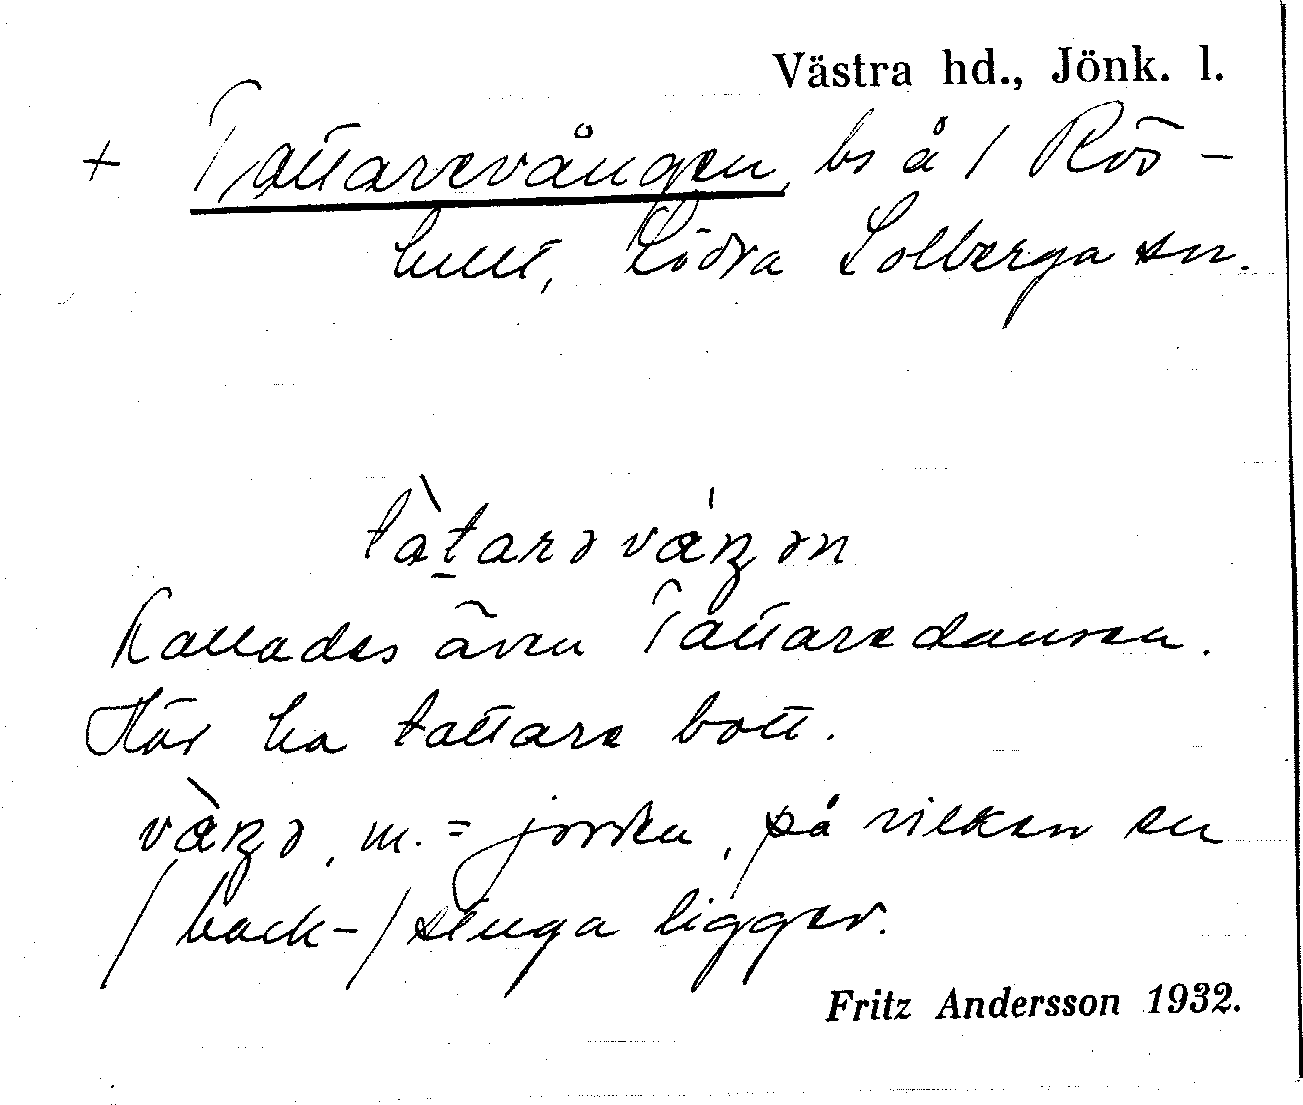 Västra hd., Jönk. l.
+ Tattarevången, bs å 1 Rös-
hult, Södra Solberga sn.
tàtarə våŋən
Kallades även Tattaredansen.
Här ha tattare bott.
våŋə, m. = jorden, på vilken en
/back-/stuga ligger.
Fritz Andersson 1932.